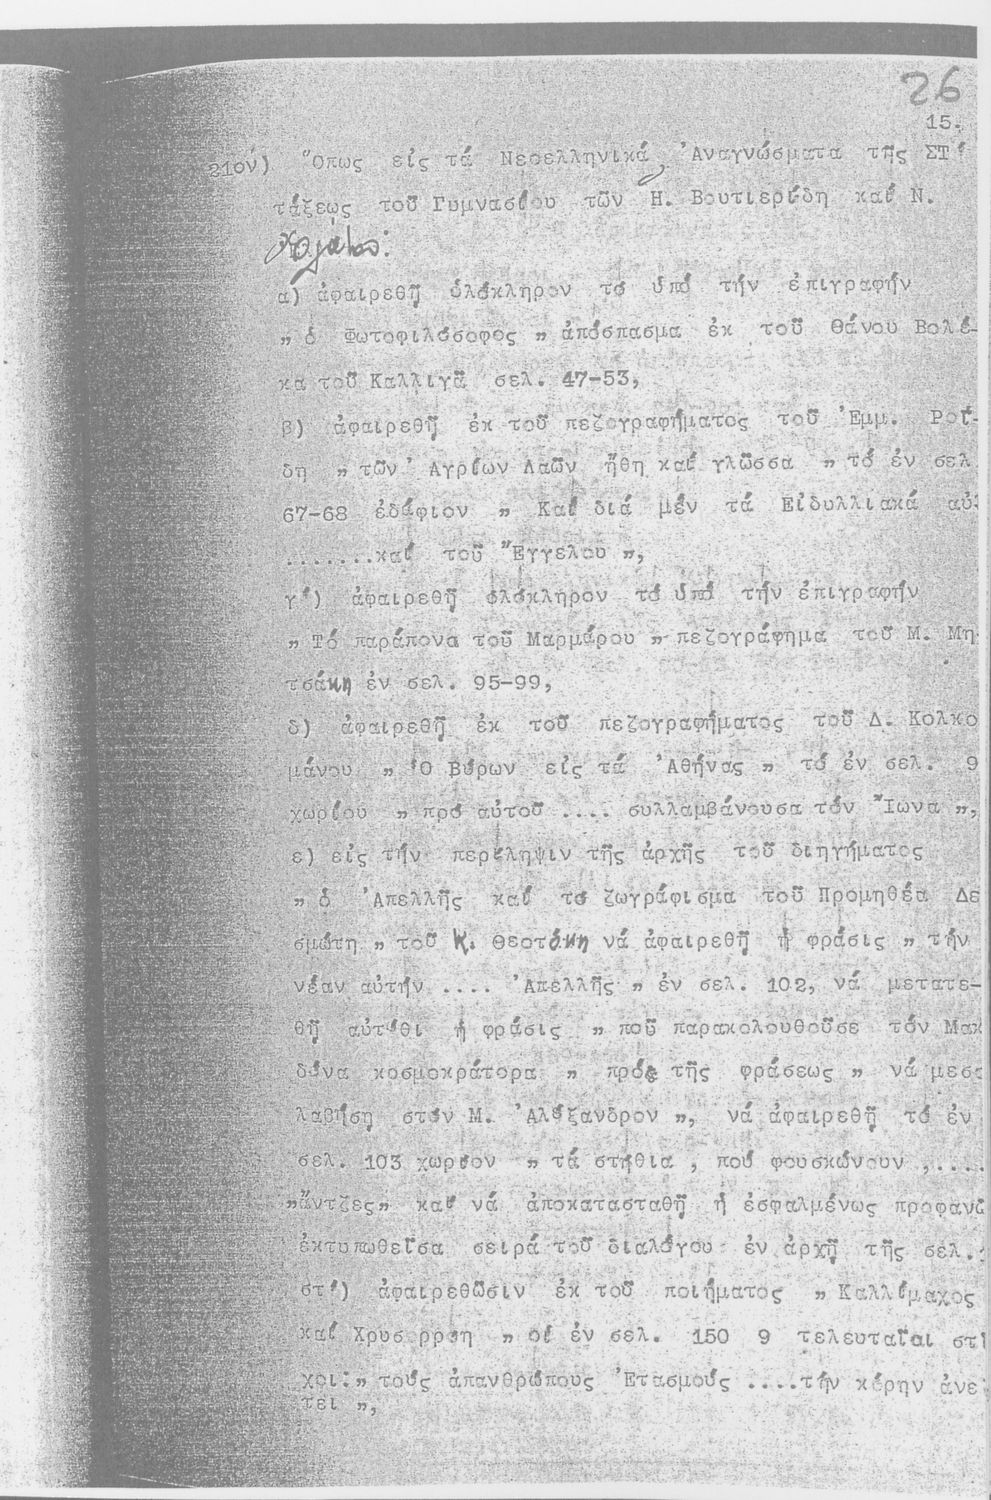 26
15.
21ον) Ὅπως εἰς τά Νεοελληνικά Ἀναγνώσματα τῆς ΣΤ΄
τάξεως τοῦ Γυμνασίου τῶν Η. Βουτιερίδη καί Ν.
α) ἀφαιρεθῇ ὁλόκληρον τό ὑπό τήν ἐπιγραφήν
„ ὁ Φωτοφιλόσοφος „ ἀπόσπασμα ἐκ τοῦ Θάνου Βολέ-
κα τοῦ Καλλιγᾶ σελ. 47-53,
β) ἀφαιρεθῇ ἐκ τοῦ πεζογραφήματος τοῦ Ἐμμ. Ροΐ-
δη „ τῶν Ἀγρίων Λαῶν ἤθη καί γλῶσσα „ τό ἐν σελ.
67-68 ἐδάφιον „ Καί διά μέν τά Εἰδυλλιακά αὐ
.......καί τοῦ Ἔγγελου „,
γ΄) ἀφαιρεθῇ ὁλόκληρον τό ὑπό τήν ἐπιγραφήν
„ Τό παράπονα τοῦ Μαρμάρου „ πεζογράφημα τοῦ Μ. Μη
τσάκη ἐν σελ. 95-99,
δ) ἀφαιρεθῇ ἐκ τοῦ πεζογραφήματος τοῦ Δ. Κολκο
μάνου „ Ὁ Βύρων εἰς τά Ἀθήνας „ τό ἐν σελ. 9
χωρίου „ πρό αὐτοῦ .... συλλαμβάνουσα τόν Ἴωνα „,
ε) εἰς τήν περίληψιν τῆς ἀρχῆς τοῦ διηγήματος
„ ὁ Ἀπελλῆς καί τό ζωγράφισμα τοῦ Προμηθέα Δε
σμώτη „ τοῦ Κ. Θεοτόκη νά ἀφαιρεθῇ ἡ φράσις „ τήν
νέαν αὐτήν .... Ἀπελλῆς „ ἐν σελ. 102, νά μετατε-
θῇ αὐτόθι ἡ φράσις „ πού παρακολουθοῦσε τόν Μακ
δόνα κοσμοκράτορα „ πρό τῆς φράσεως „ νά μεσο
λαβήση στόν Μ. Ἀλέξανδρον „, νά ἀφαιρεθῇ τό ἐν
σελ. 103 χωρίον „ τά στήθια , πού φουσκώνουν ,....
„ἄντζες„ καί νά ἀποκατασταθῇ ἡ ἐσφαλμένως προφανῶ
ἐκτυπωθεῖσα σειρά τοῦ διαλόγου ἐν ἀρχῇ τῆς σελ.
στ΄) ἀφαιρεθῶσιν ἐκ τοῦ ποιήματος „ Καλλίμαχος
καί Χρυσορρόη „ οἱ ἐν σελ. 150 9 τελευταῖαι στί
χοι:„ τούς ἀπανθρώπους Ἐτασμούς ....τήν κόρην ἀνε
τει „,